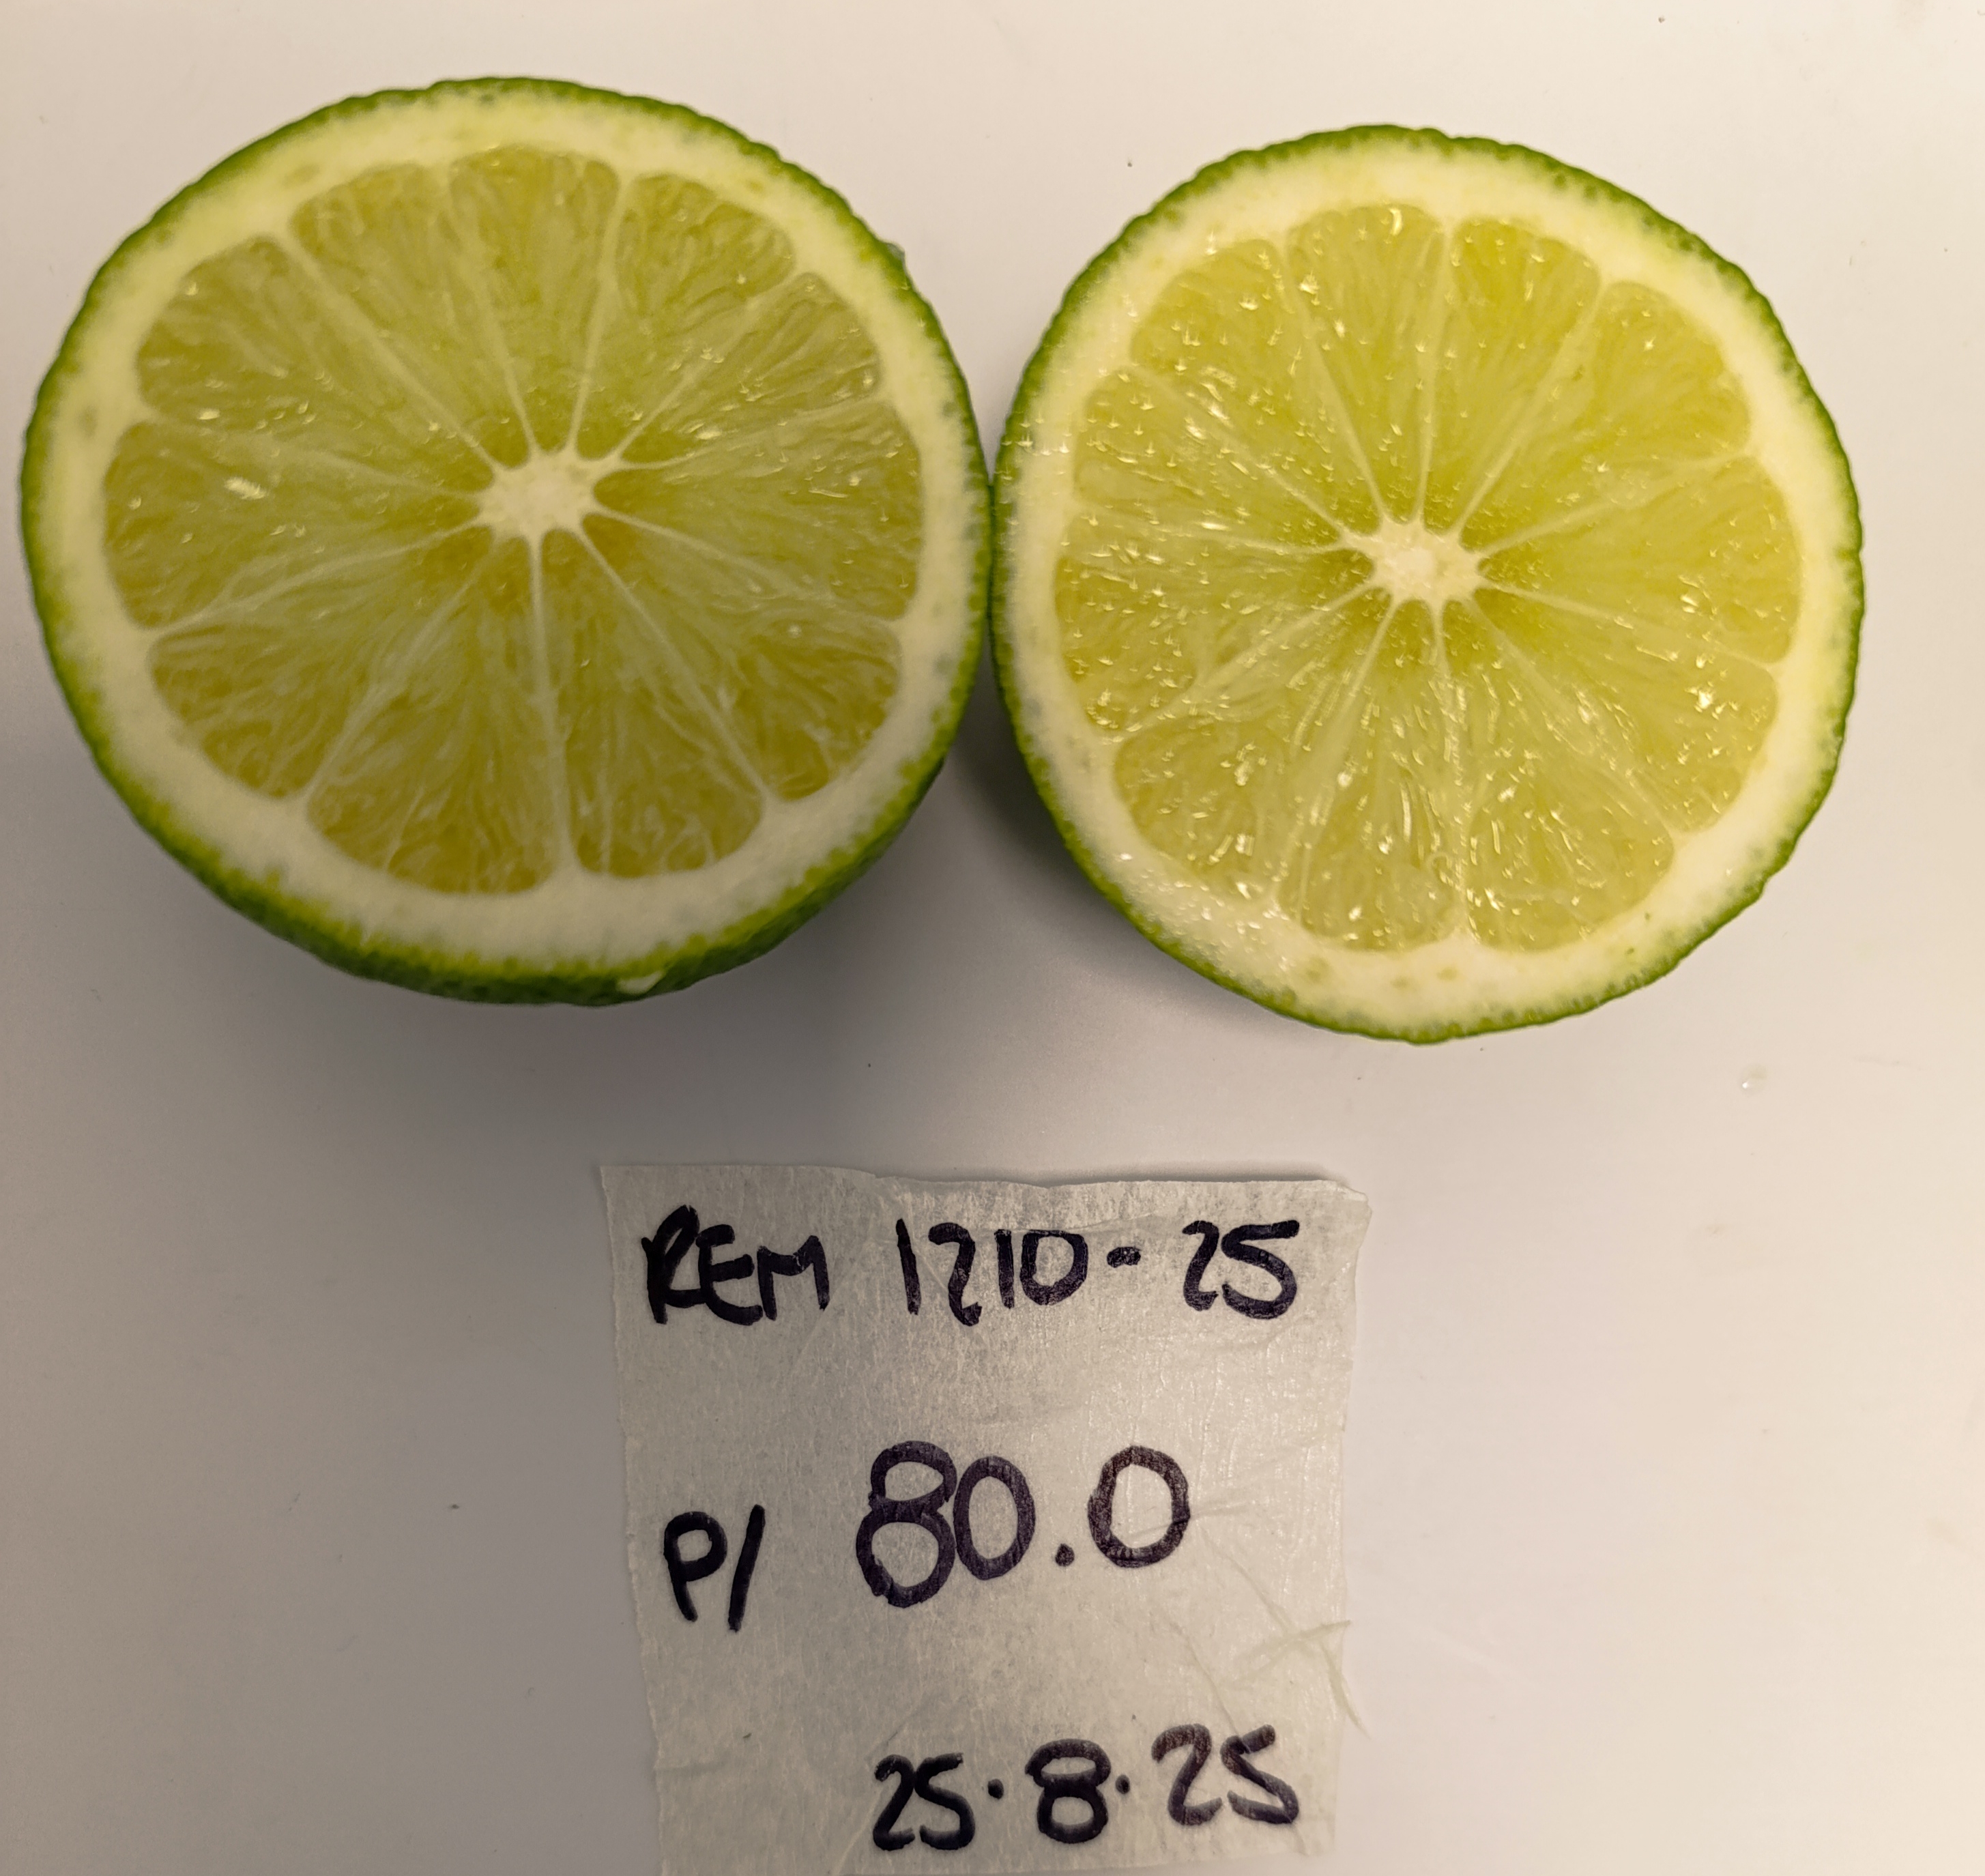 REM 1210-25
P/ 80.0
25.8.25